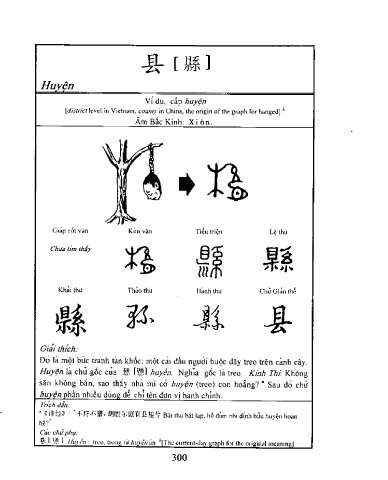 县 [ 縣 ]
Huyện
Ví dụ, cấp huyện
[district level in Vietnam, county in China, the origin of the graph for hanged] 6
Âm Bắc Kinh: Xiòn.
Giáp cốt văn Kim văn Tiểu triện Lệ thư
Chưa tìm thấy 縣 縣
Khải thư Thảo thư Hành thư Chữ Giản thể
縣 县 縣 县
Giải thích:
Đó là một bức tranh tàn khốc: một cái đầu người buộc dây treo trên cành cây.
Huyện là chủ gốc của 悬 [懸] huyện. Nghĩa gốc là treo. Kinh Thi: Không
săn không bắn, sao thấy nhà mi có huyện (treo) con hoẵng?" Sau đó chữ
huyện phần nhiều dùng để chỉ tên đơn vị hành chính.
Trích dẫn:
"《诗经》: "不狩不猎, 胡瞻尔庭有县貆兮 Bất thú bất lạp, hồ đảm nhĩ đình hữu huyện hoan
hề?"
Các chữ phụ:
悬 [懸] Huyền: treo, trong từ huyền án 6[The current-day graph for the original meaning]
300